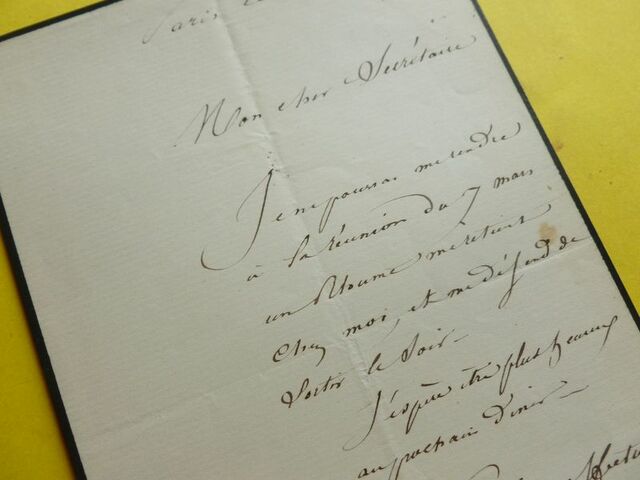 Paris
Mon cher Secrétaire
Je ne pourrai me rendre
à la réunion du 7 mars
un Rhume me retient
chez moi, et me défend de
sortir le soir —
J'espère être plus heureux
au prochain diner —